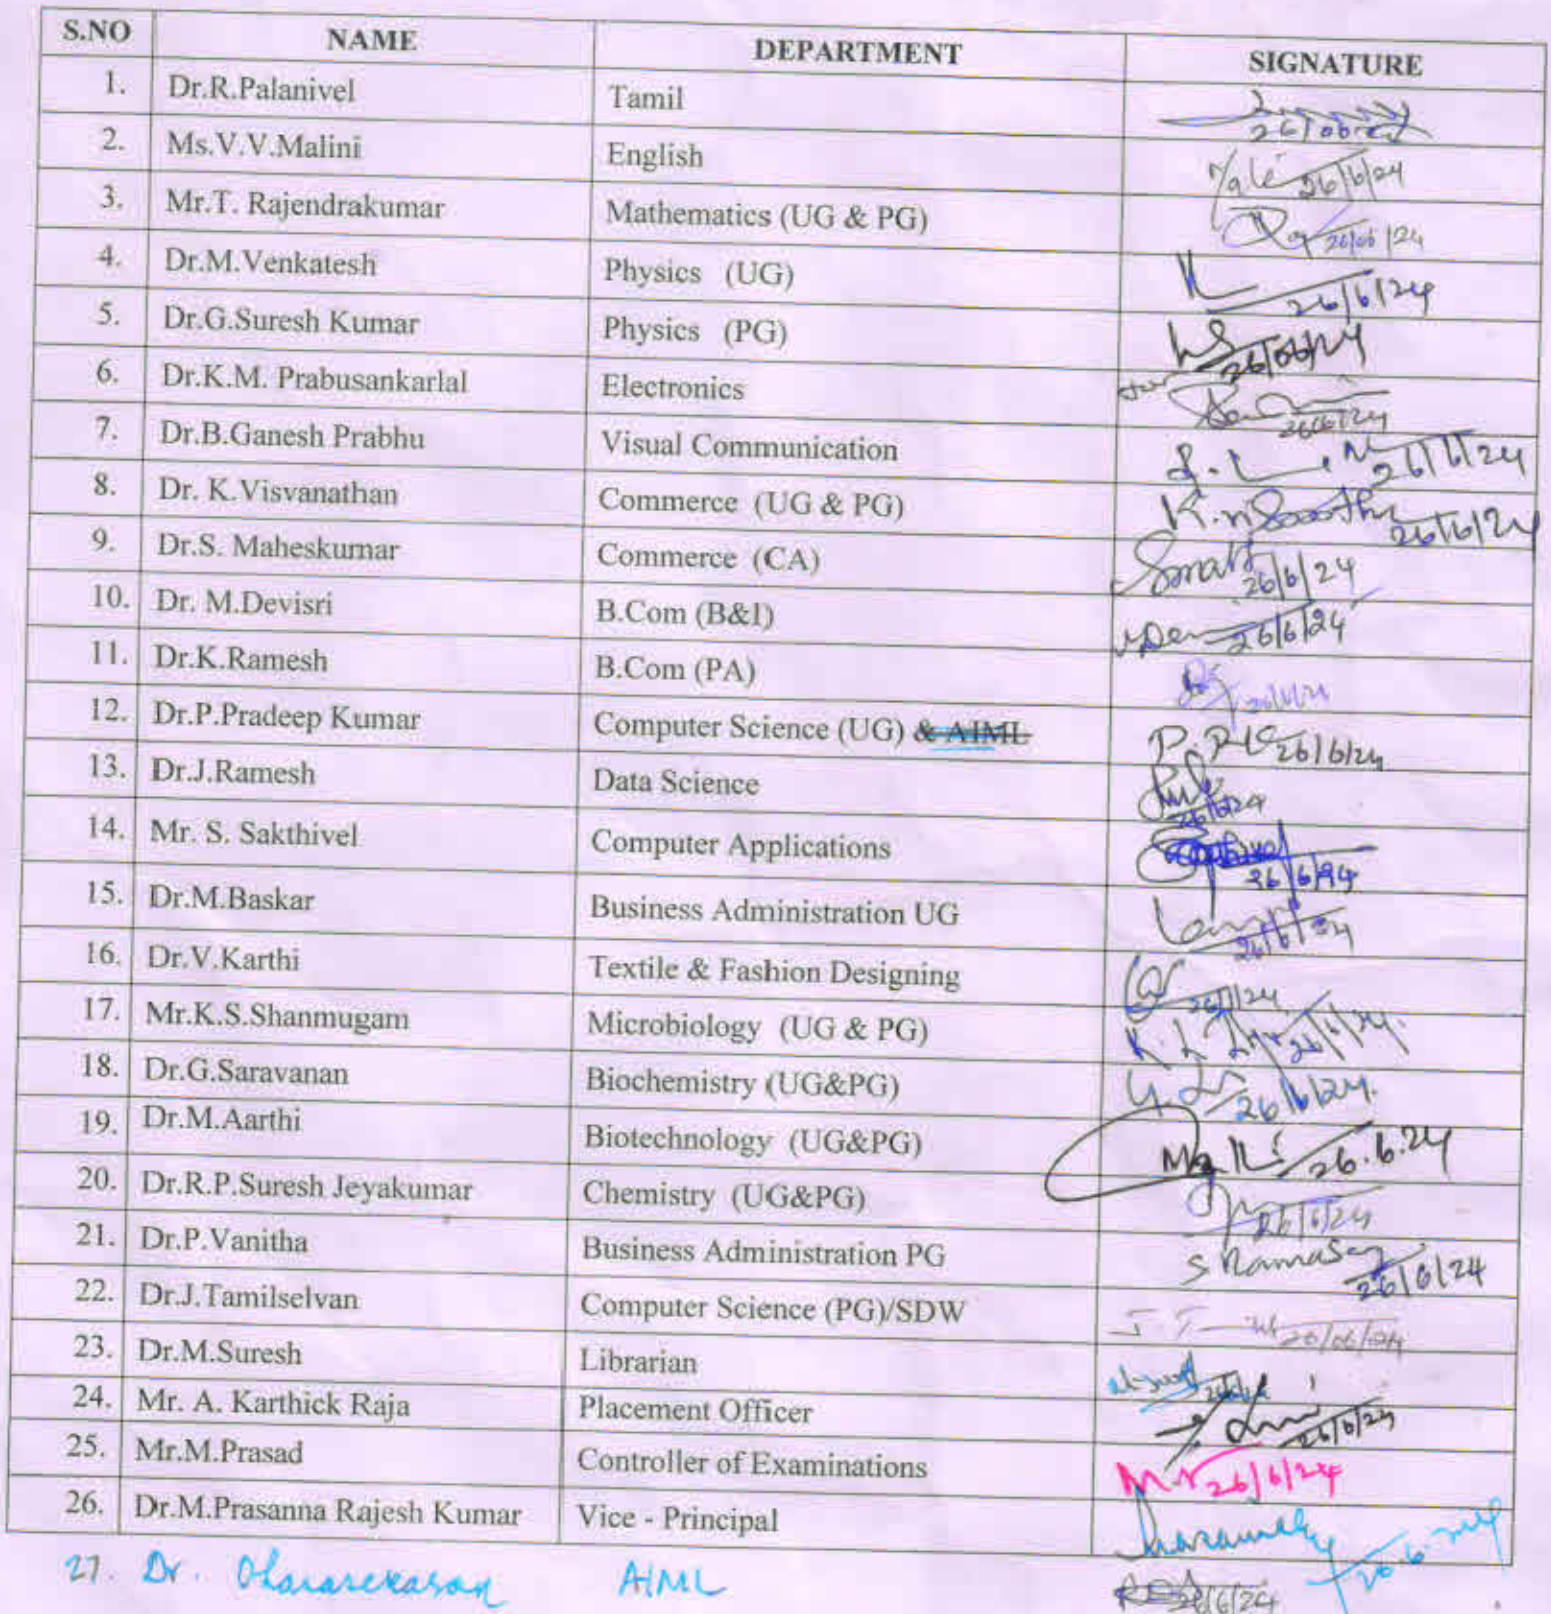 S.NO NAME DEPARTMENT SIGNATURE
1. Dr.R.Palanivel Tamil 26/06/24
2. Ms.V.V.Malini English 26/6/24
3. Mr.T. Rajendrakumar Mathematics (UG & PG) 26/06/24
4. Dr.M.Venkatesh Physics (UG) 26/6/24
5. Dr.G.Suresh Kumar Physics (PG) 26/06/24
6. Dr.K.M. Prabusankarlal Electronics 26/6/24
7. Dr.B.Ganesh Prabhu Visual Communication 26/6/24
8. Dr. K.Visvanathan Commerce (UG & PG) 26/6/24
9. Dr.S. Maheskumar Commerce (CA) 26/6/24
10. Dr. M.Devisri B.Com (B&I) 26/6/24
11. Dr.K.Ramesh B.Com (PA)
12. Dr.P.Pradeep Kumar Computer Science (UG) & AIML 26/6/24
13. Dr.J.Ramesh Data Science 26/6/24
14. Mr. S. Sakthivel Computer Applications 26/6/24
15. Dr.M.Baskar Business Administration UG 26/6/24
16. Dr.V.Karthi Textile & Fashion Designing
17. Mr.K.S.Shanmugam Microbiology (UG & PG) 26/6/24.
18. Dr.G.Saravanan Biochemistry (UG&PG) 26/6/24.
19. Dr.M.Aarthi Biotechnology (UG&PG) 26.6.24
20. Dr.R.P.Suresh Jeyakumar Chemistry (UG&PG) 26/6/24
21. Dr.P.Vanitha Business Administration PG 26/6/24
22. Dr.J.Tamilselvan Computer Science (PG)/SDW 26/06/24
23. Dr.M.Suresh Librarian
24. Mr. A. Karthick Raja Placement Officer 26/6/24
25. Mr.M.Prasad Controller of Examinations 26/6/24
26. Dr.M.Prasanna Rajesh Kumar Vice - Principal 26.6.24
27. Dr. AIML 26/6/24